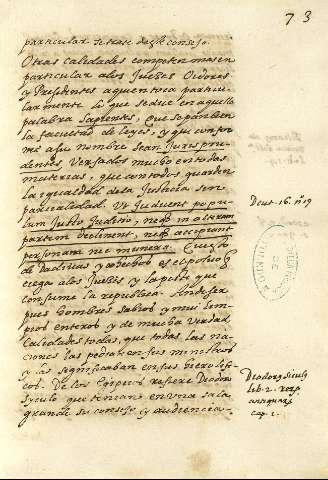 73
particular se trate deste consejo.
Otras calidades competen mas en
particular a los Juezes Oidores
y Presidentes a quen toca particu-
larmente lo que se duce en aquella
palabra sapientes, que sepan bien
la facultad de leyes, y que confor
me a su nombre sean Juris pru-
dentes versados mucho en todas
materias, que con todos guarden
la igualdad de la Justicia sin
parcialidad. Vt Judicent popu-
lum Justo Juditio, neq in alteram
partem declinent, neq accipiant
personam nec munera.
Deut. 16. nº 19
de dadivas y cohechos es el polvo q
ciega a los Juezes y la peste que
consume la republica. An de ser
pues hombres sabios y mui lim-
pios enteros y de mucha verdad
Calidades todas, que todas las na-
ciones las pedian en sus ministros
y as significaban en sus hierogli-
cos. De los Egipcios refiere Diodoro
Syculo que tenian en una sala
grande su consejo y audiencia
Deodoro siculo
lib. 2. rerũ
antiquarũ
cap. 1.